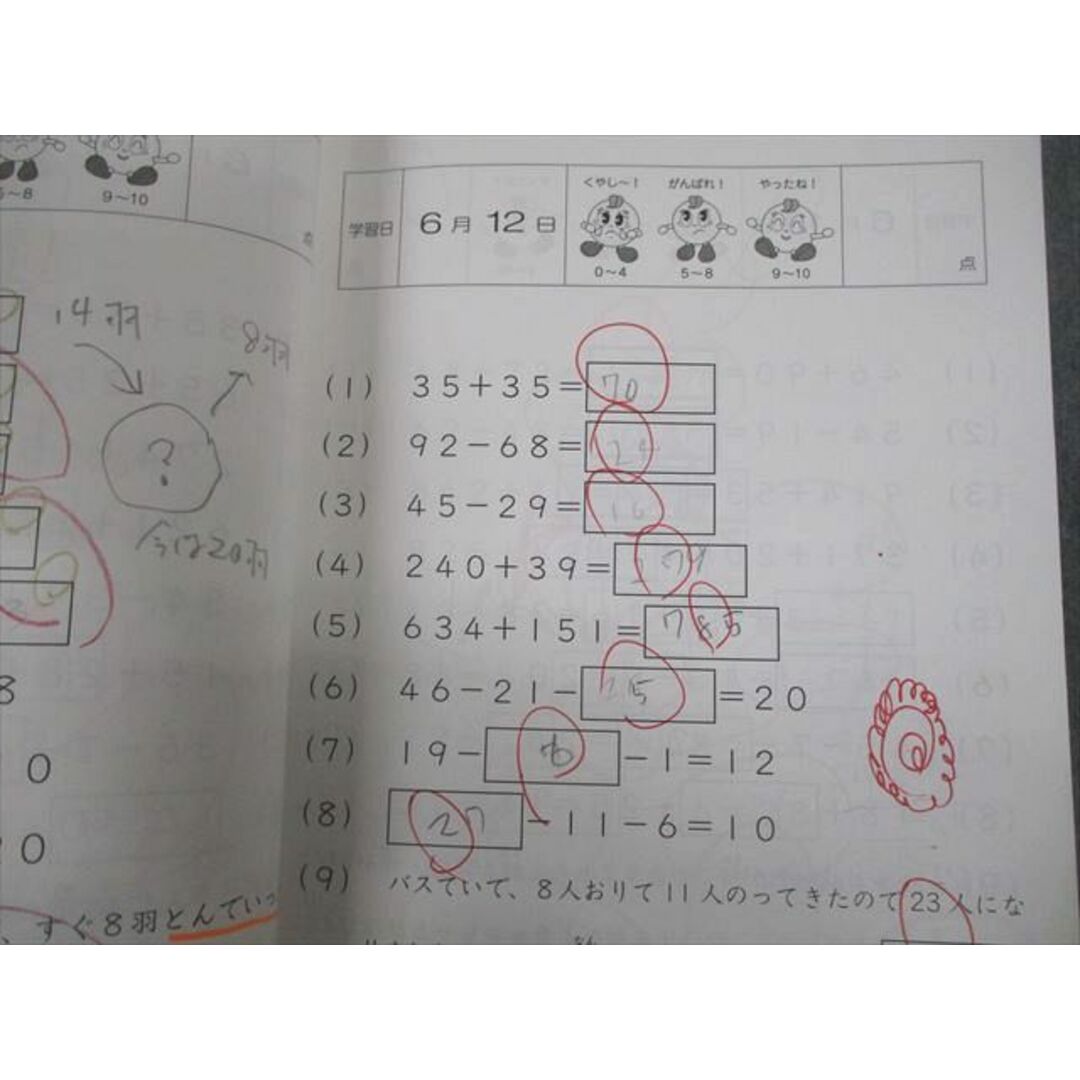 5～8
9～10
点
14羽
8羽
?
今は20羽
8
0
0
すぐ8羽とんでいっ
学習日
6月12日
くやし～!
がんばれ!
やったね!
0～4
5～8
9～10
点
(1) 35+35=70
(2) 92-68=24
(3) 45-29=16
(4) 240+39=279
(5) 634+151=785
(6) 46-21-5=20
(7) 19-6-1=12
(8) 27-11-6=10
(9) バスていで、8人おりて11人のってきたので23人にな